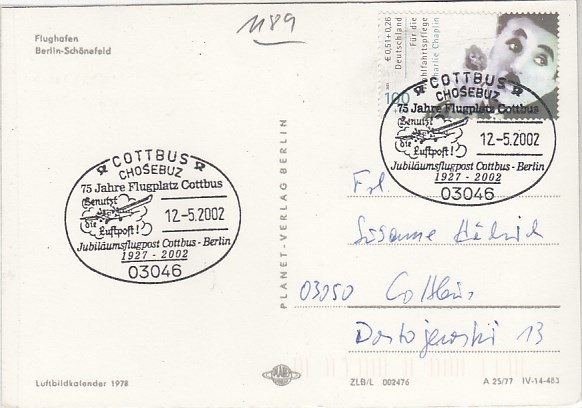 1189
Flughafen
Berlin-Schönefeld
€ 0,51+0,26
Deutschland
Für die
Wohlfahrtspflege
Charlie Chaplin
100
COTTBUS
CHOŚEBUZ
75 Jahre Flugplatz Cottbus
Benutzt
die
Luftpost!
12.-5.2002
Jubiläumsflugpost Cottbus - Berlin
1927 - 2002
03046
COTTBUS
CHOŚEBUZ
75 Jahre Flugplatz Cottbus
Benutzt
die
Luftpost!
12.-5.2002
Jubiläumsflugpost Cottbus - Berlin
1927 - 2002
03046
PLANET-VERLAG BERLIN
Frl
Susanne
03050 Cottbus
Dostojewski 13
Luftbildkalender 1978
PLANET
ZLB/L 002476
A 25/77 IV-14-483